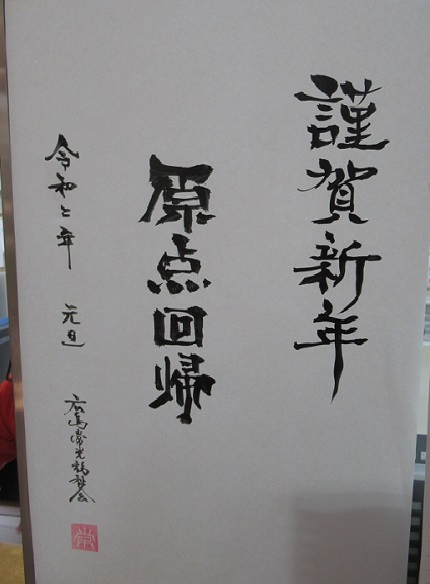 謹賀新年
原点回帰
令和七年 元旦
広島常光福祉会